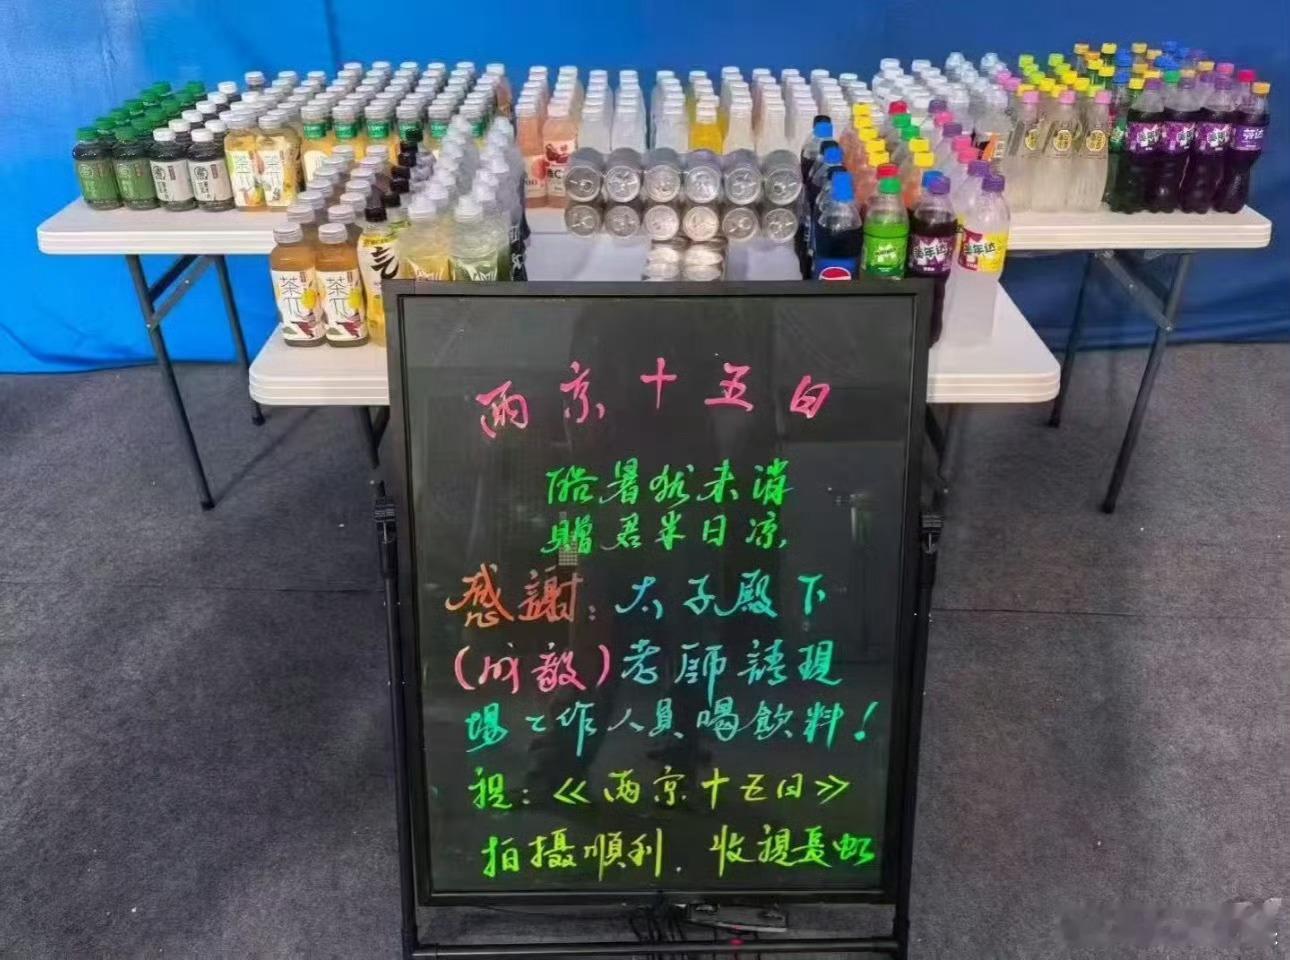 茶π
茶π
美年达
美年达
兩京十五日
酷暑犹未消
贈君半日凉
感謝：太子殿下
（成毅）老師請現
場工作人員喝飲料！
祝：《兩京十五日》
拍摄順利．收視長虹